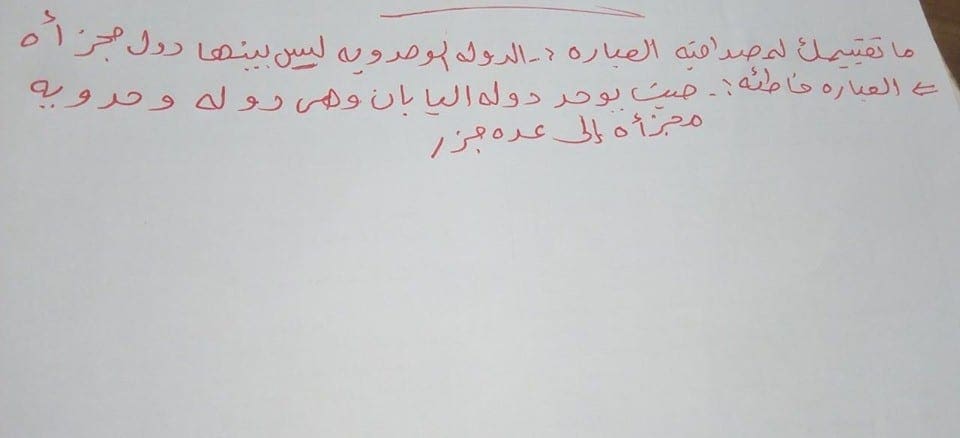 ما تقييمك لمصداقيه العباره :- الدوله الوحدويه ليس بينها دول مجزأه
⇐ العباره خاطئه :- حيث يوجد دوله اليابان وهى دوله وحدويه
مجزأه إلى عده جزر